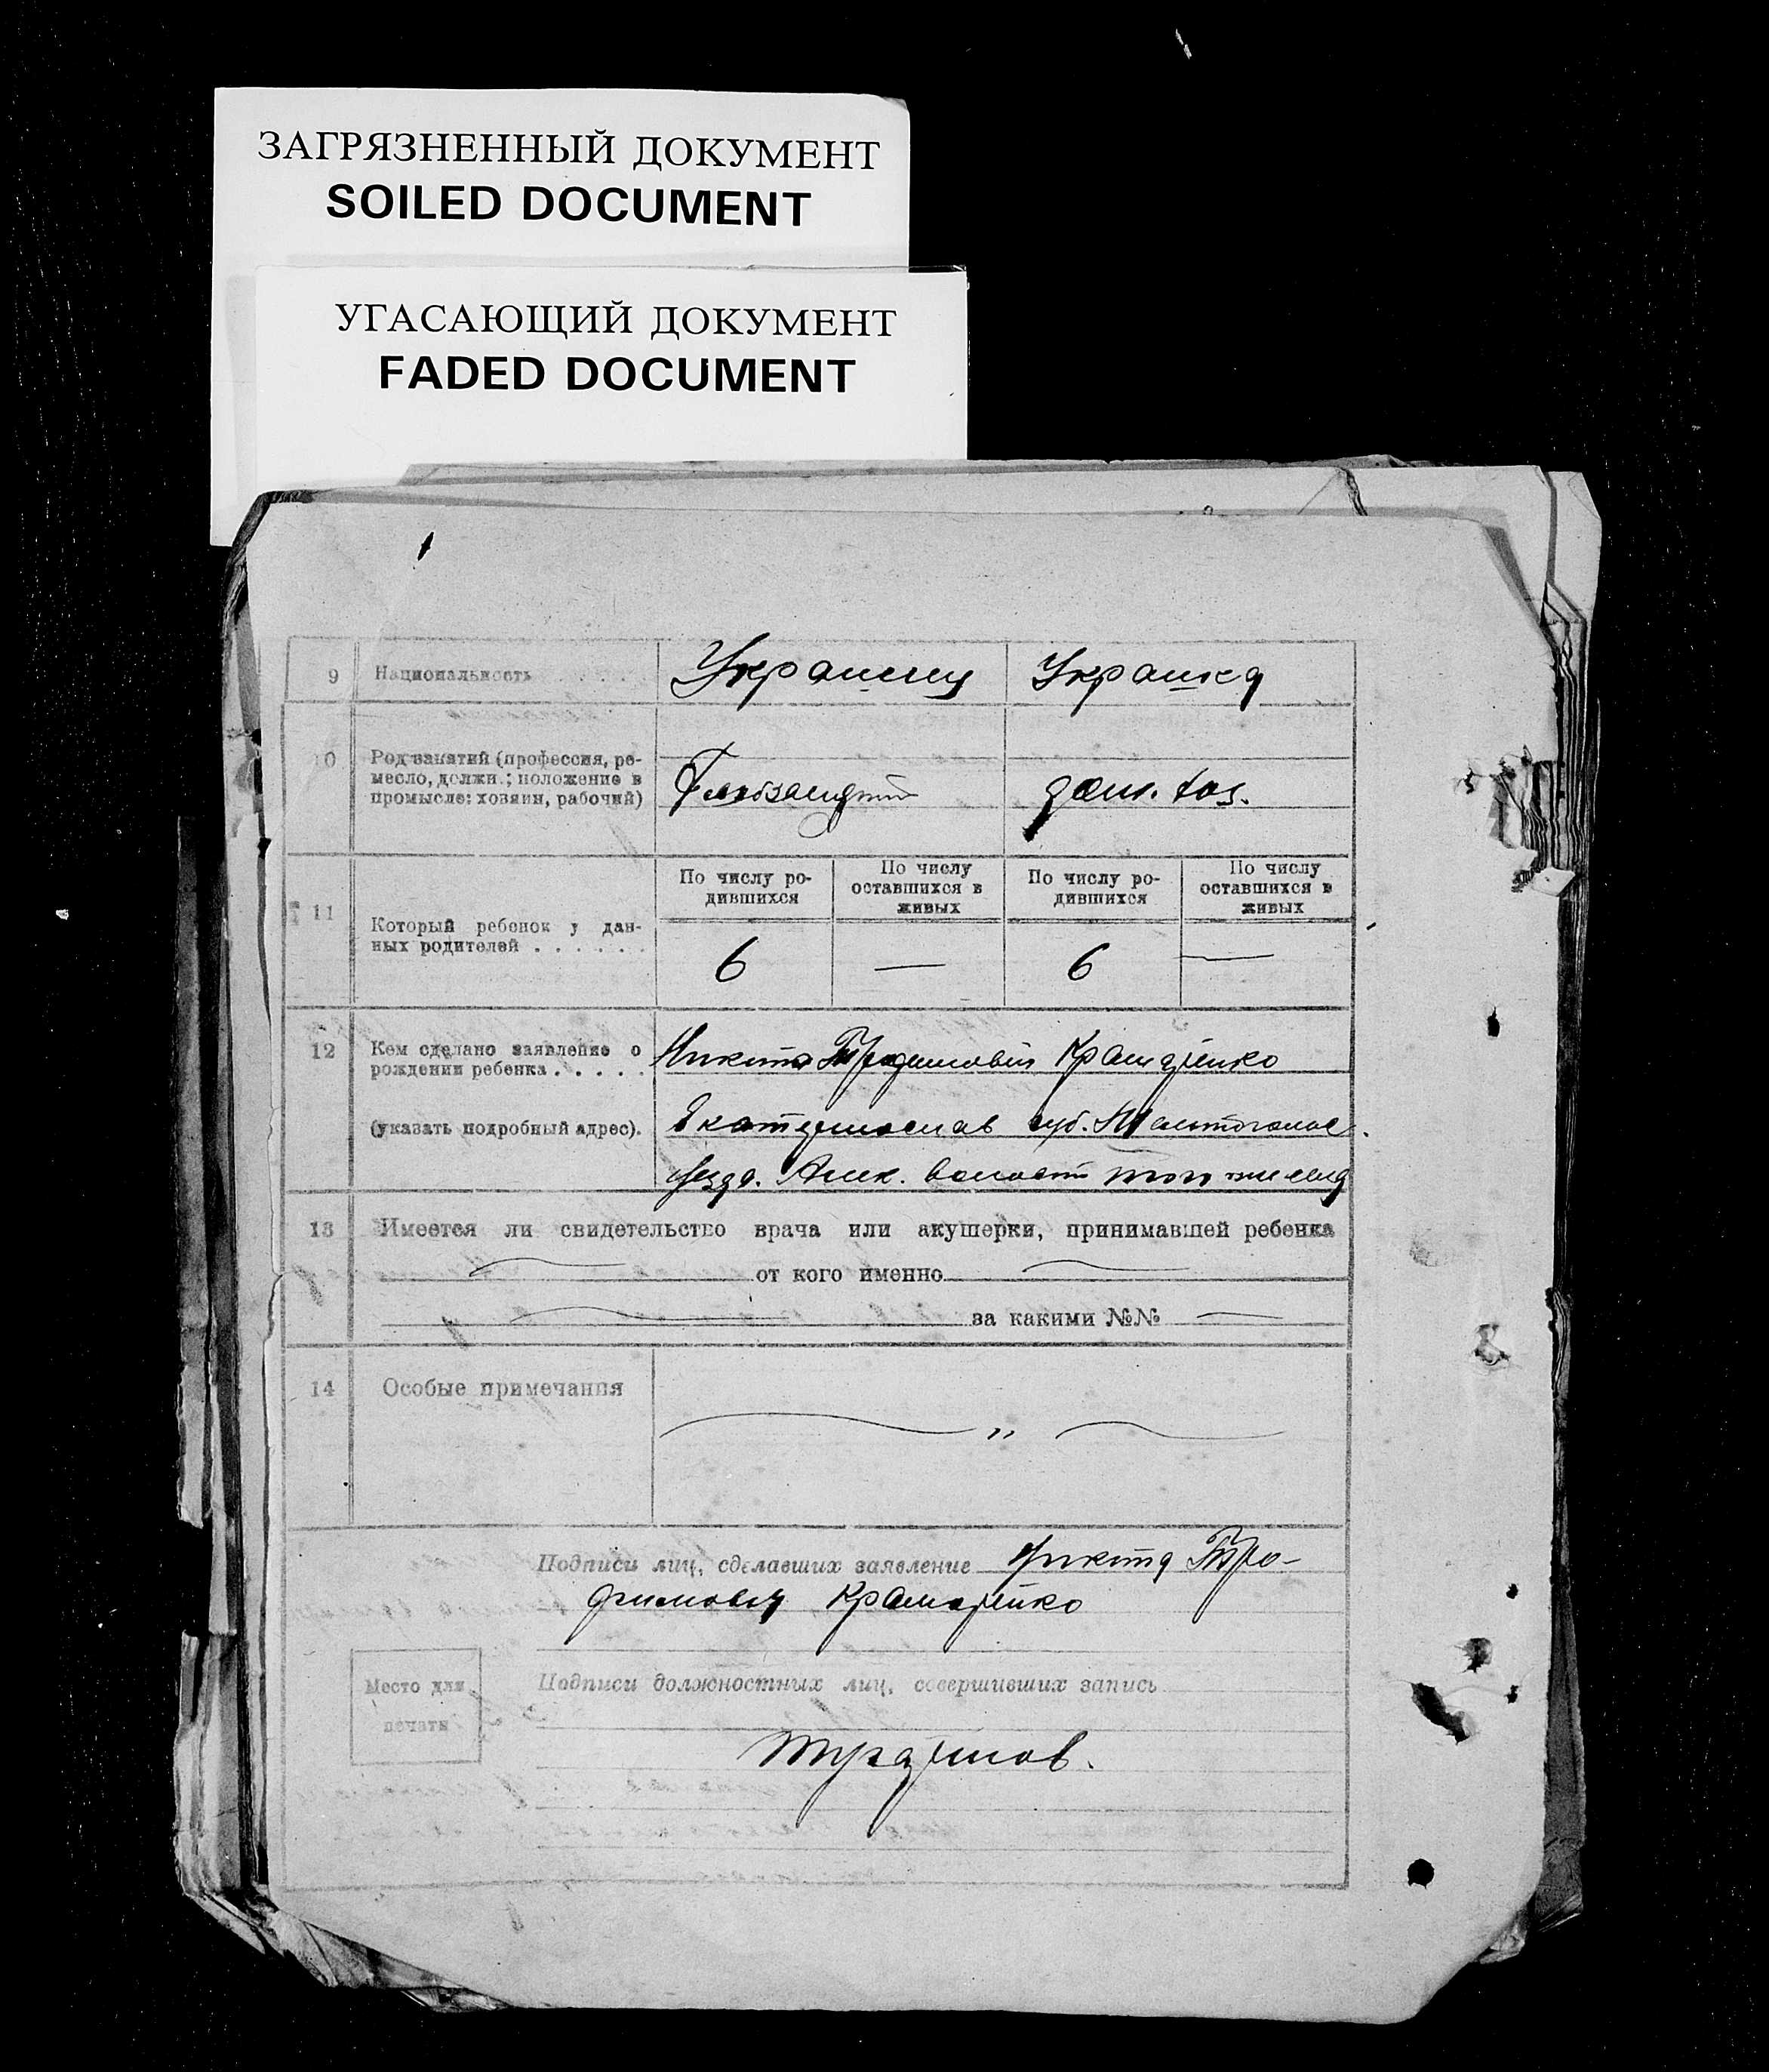 ЗАГРЯЗНЕННЫЙ ДОКУМЕНТ
SOILED DOCUMENT
УГАСАЮЩИЙ ДОКУМЕНТ
FADED DOCUMENT
9 Национальность . . . . Украинец Украинка
10 Род занятий (профессия, ре-
месло, должн.; положение в
промысле: хозяин, рабочий)
Хлебзащит дом. хоз.
11 Который ребенок у дан-
ных родителей . . . . . .
По числу ро-
дившихся
По числу
оставшихся в
живых
По числу ро-
дившихся
По числу
оставшихся в
живых
6 — 6 —
12 Кем сделано заявление о
рождении ребенка . . . . .
(указать подробный адрес).
Никита Трофимович Крамаренко
Екатеринослав губ.
уезда. Алек. волости того же села
13 Имеется ли свидетельство врача или акушерки, принимавшей ребенка
от кого именно
за какими №№ —
14 Особые примечания
— „ —
Подписи лиц, сделавших заявление Никита Тро-
фимович Крамаренко
Место для
печати
Подписи должностных лиц, совершивших запись